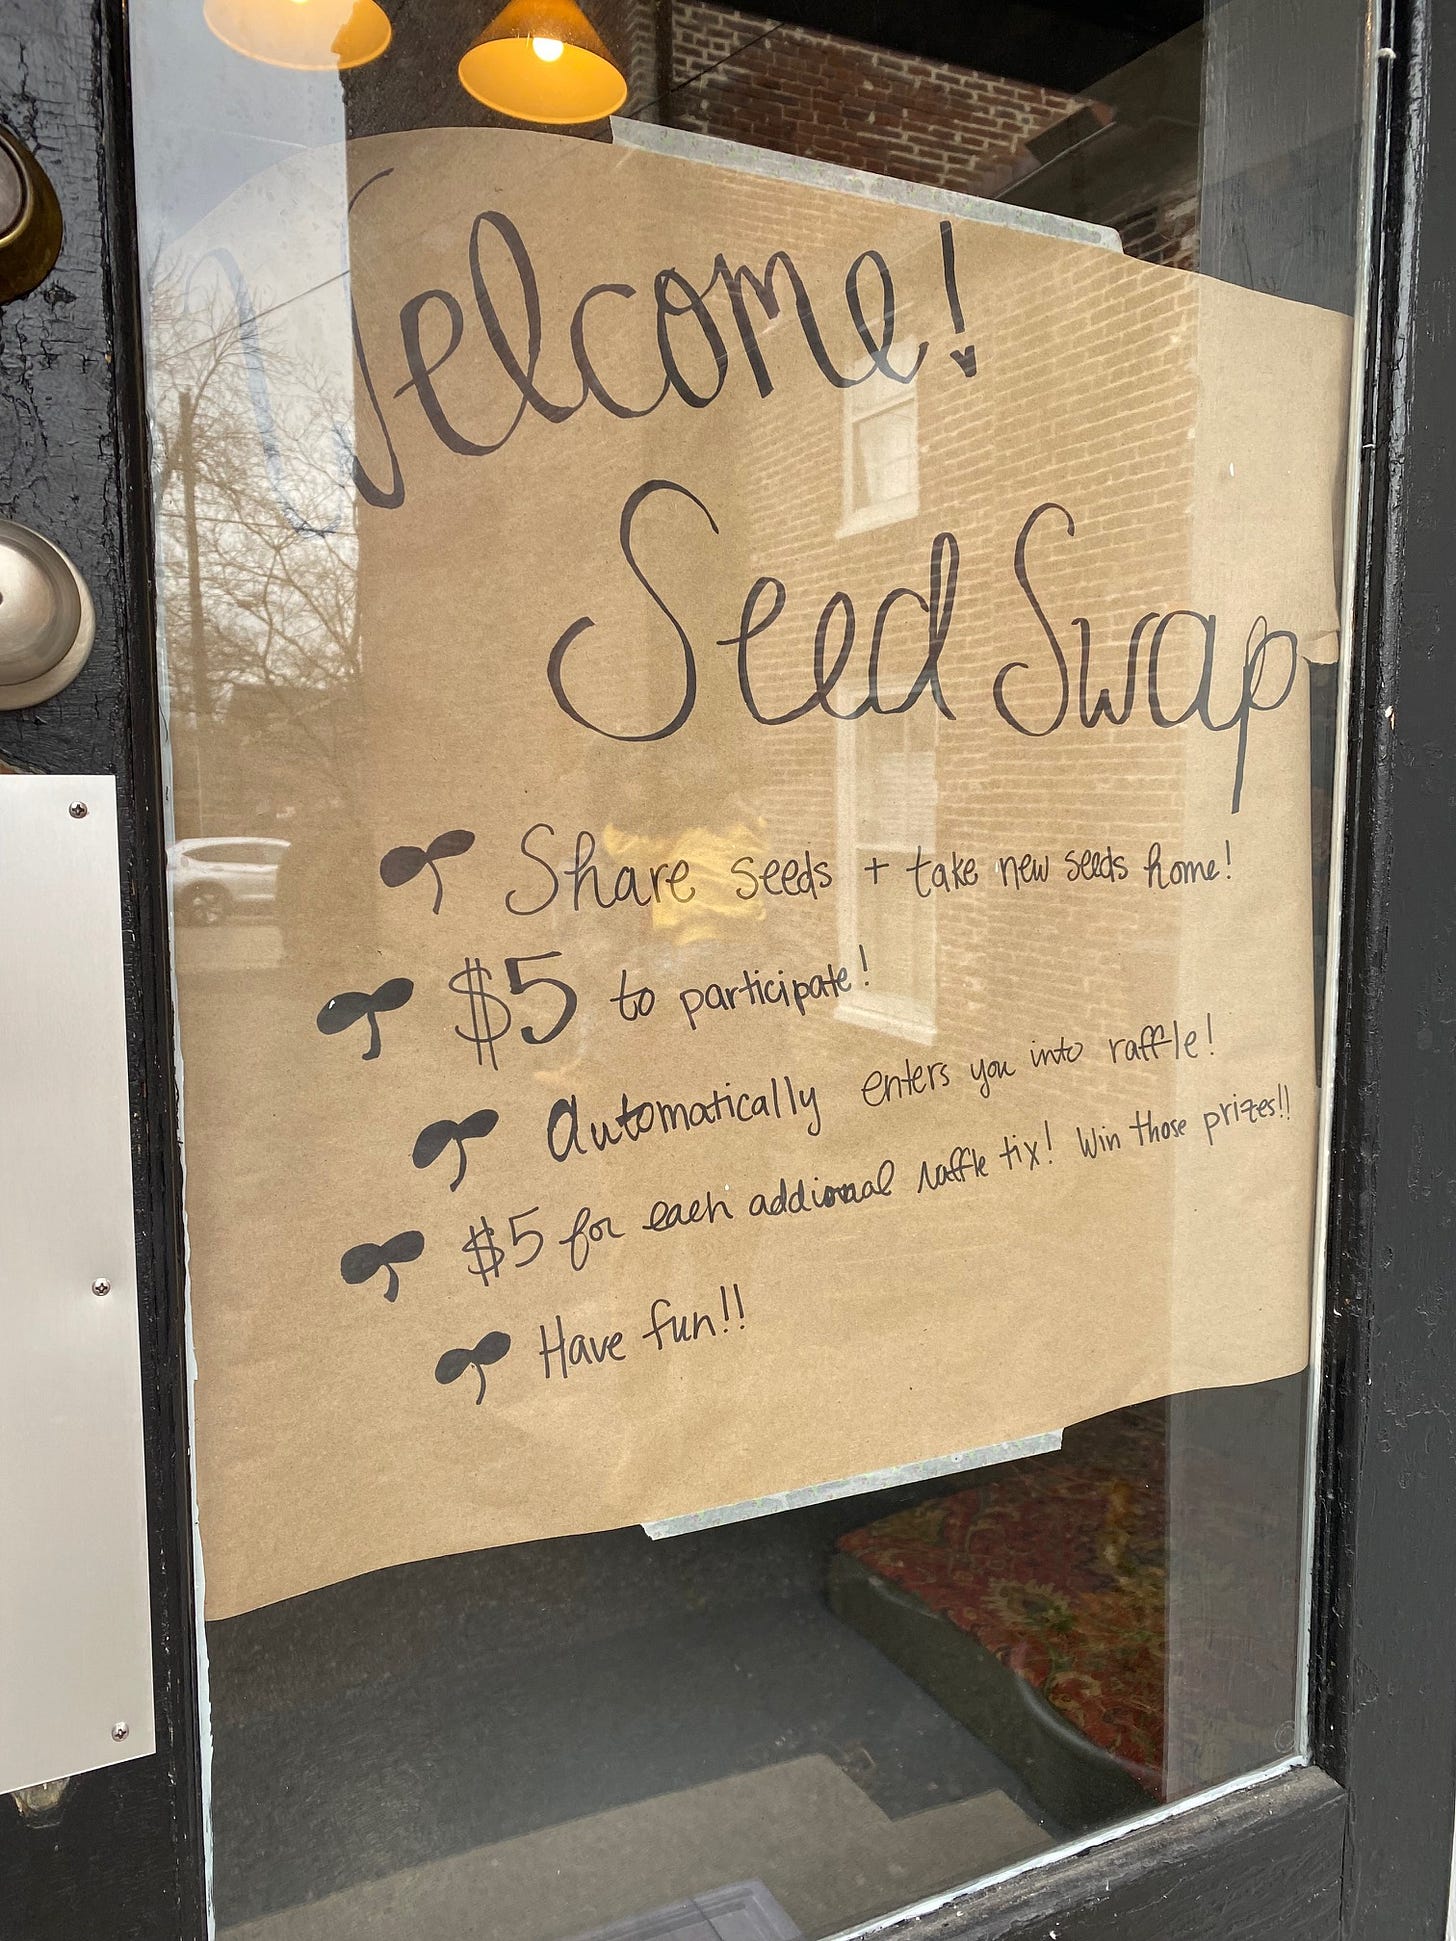 Welcome!
Seed Swap
Share seeds + take new seeds home!
$5 to participate!
Automatically enters you into raffle!
$5 for each addional raffle tix! Win those prizes!!
Have fun!!